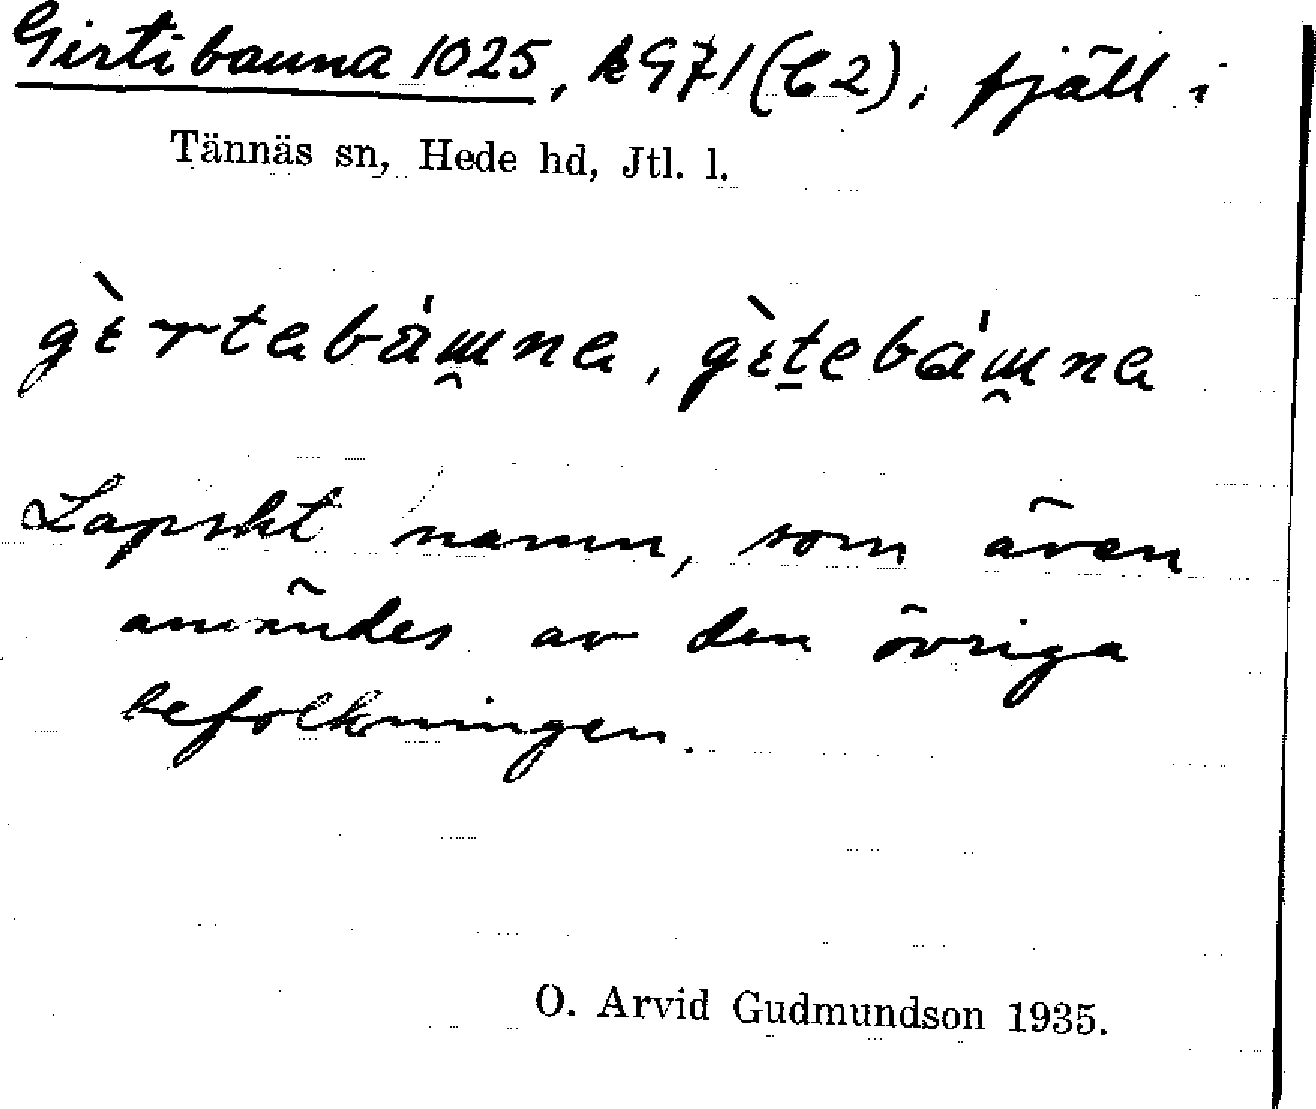 Girtibauna 1025, k 971 (C2), fjäll i
Tännäs sn, Hede hd, Jtl. l.
Lapskt namn, som även
användes av den övriga
befolkningen.
O. Arvid Gudmundson 1935.